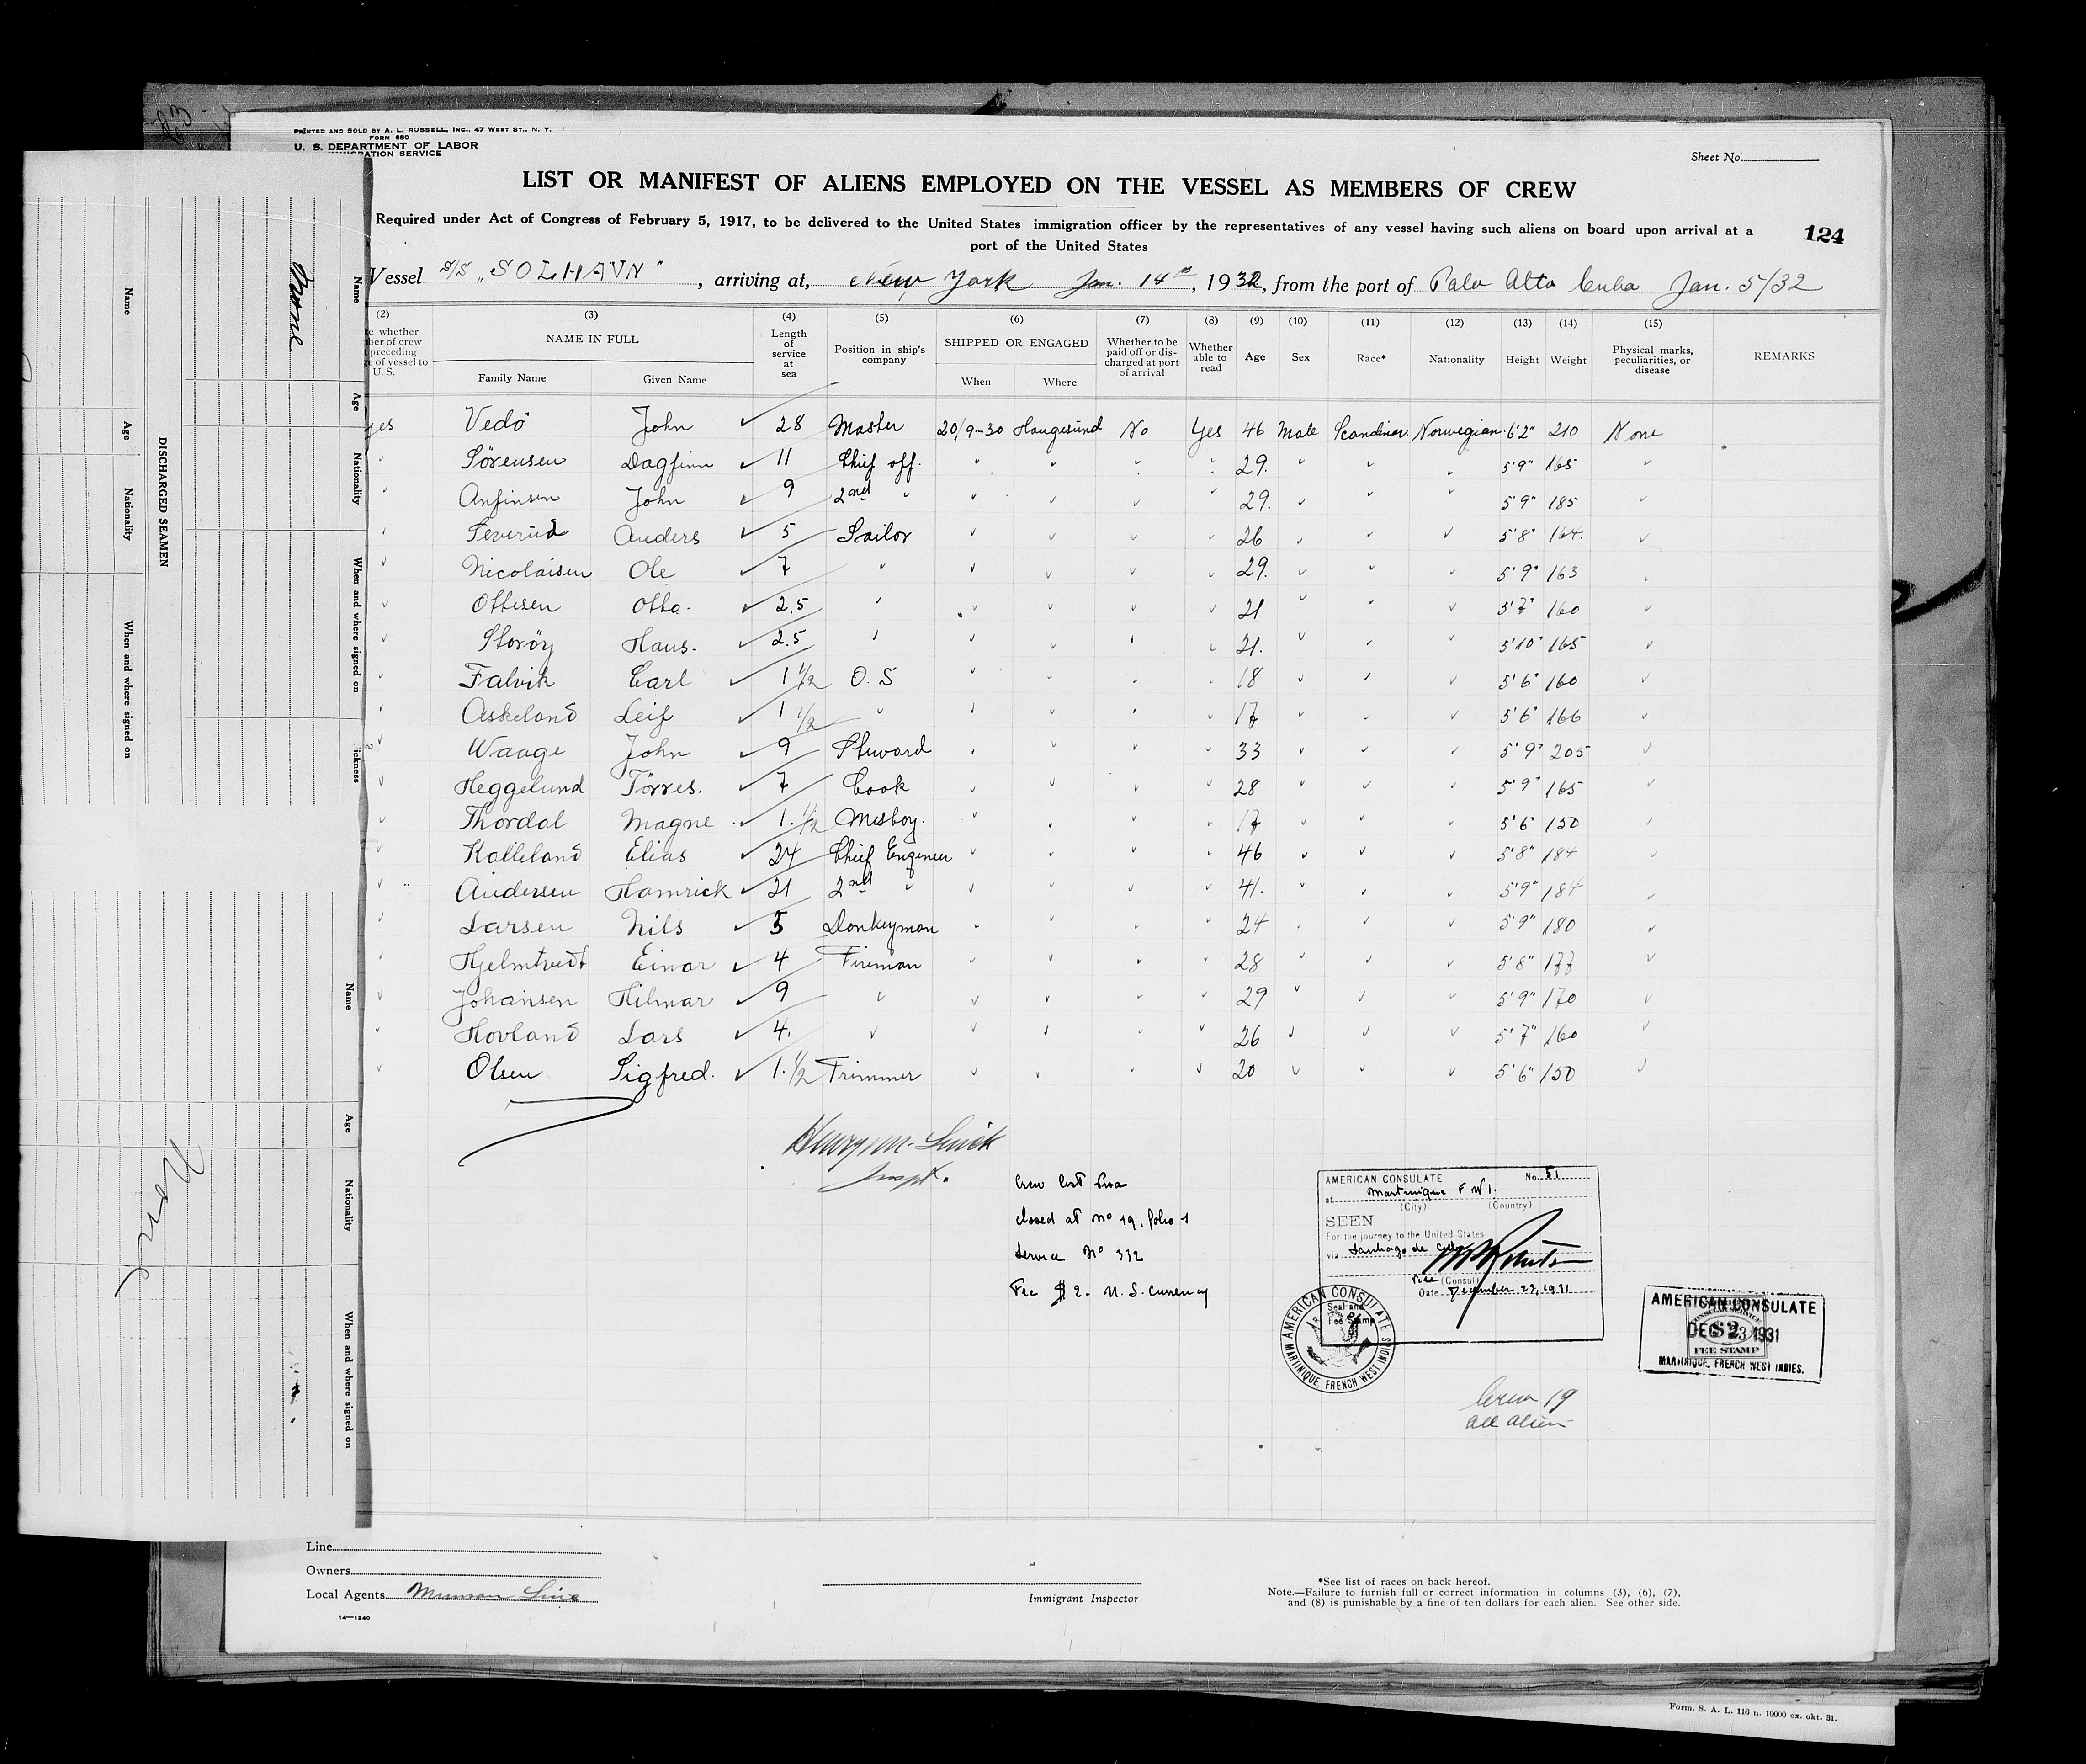 PRINTED AND SOLD BY A. L. RUSSELL, INC., 47 WEST ST., N. Y.
FORM 680
U. S. DEPARTMENT OF LABOR
IMMIGRATION SERVICE
Sheet No.
LIST OR MANIFEST OF ALIENS EMPLOYED ON THE VESSEL AS MEMBERS OF CREW
Required under Act of Congress of February 5, 1917, to be delivered to the United States immigration officer by the representatives of any vessel having such aliens on board upon arrival at a
port of the United States
124
Vessel S/S „SOLHAVN", arriving at, New York Jan. 14th, 1932, from the port of Palo Alto Cuba Jan. 5/32
(2) (3) (4) (5) (6) (7) (8) (9) (10) (11) (12) (13) (14) (15)
whether
ber of crew
preceding
e of vessel to
U. S.
NAME IN FULL
Family Name Given Name
Length of service at sea
Position in ship's company
SHIPPED OR ENGAGED
When Where
Whether to be paid off or discharged at port of arrival
Whether able to read
Age Sex Race* Nationality Height Weight
Physical marks, peculiarities, or disease
REMARKS
yes Vedö John ✓ 28 Master 20/9-30 Haugesund No Yes 46 Male Scandinav. Norwegian 6'2" 210 None
" Sörensen Dagfinn ✓ 11 Chief off. " " " " 29. " " " 5'9" 165 "
" Anfinsen John ✓ 9 2nd " " " " " 29. " " " 5'9" 185 "
" Teverud Anders ✓ 5 Sailor " " " " 26 " " " 5'8" 164. "
" Nicolaisen Ole ✓ 7 " " " " " 29. " " " 5'9" 163 "
" Ottesen Otto. ✓ 2.5 " " " " " 21 " " " 5'7" 160 "
" Storöy Hans. ✓ 2.5 " " " " " 21. " " " 5'10" 165 "
" Falvik Carl ✓ 1 1/2 O. S " " " " 18 " " " 5'6" 160 "
" Askeland Leif ✓ 1 1/2 " " " " " 17 " " " 5'6" 166 "
" Waage John ✓ 9 Stuward " " " " 33 " " " 5'9" 205 "
" Heggelund Törres. ✓ 7 Cook " " " " 28 " " " 5'9" 165 "
" Thordal Magne ✓ 1. 1/2 Mesboy. " " " " 17 " " " 5'6 150 "
" Kalleland Elias ✓ 24 Chief Engineer " " " " 46 " " " 5'8" 184 "
" Andersen Hamrick ✓ 21 2nd " " " " " 41. " " " 5'9" 184 "
" Larsen Nils ✓ 5 Donkeyman " " " " 24 " " " 5'9" 180 "
" Hjelmtvedt Einar ✓ 4 Fireman " " " " 28 " " " 5'8" 177 "
" Johansen Hilmar ✓ 9 " " " " " 29 " " " 5'9" 170 "
" Hovland Lars ✓ 4. " " " " " 26 " " " 5'7" 160 "
" Olsen Sigfred. ✓ 1. 1/2 Trimmer " " " " 20 " " " 5'6" 150 "
Inspt.
Crew list visa
closed at No 19, folio 1
Service No 332
Fee $2- U. S. currency
AMERICAN CONSULATE No. 51
at Martinique F.W.I.
(City) (Country)
SEEN
For the journey to the United States
via Santiago de Cuba
Vice (Consul)
Date December 23, 1931
Seal and
Fee Stamp
AMERICAN CONSULATE
MARTINIQUE, FRENCH WEST INDIES
AMERICAN CONSULATE
DEC 23 1931
$2
FEE STAMP
MARTINIQUE, FRENCH WEST INDIES.
Crew 19
all alien
Line
Owners
Local Agents Munson Line
14—1240
Immigrant Inspector
*See list of races on back hereof.
Note.—Failure to furnish full or correct information in columns (3), (6), (7),
and (8) is punishable by a fine of ten dollars for each alien. See other side.
Form. S. A. L. 116 n. 10000 ex. okt. 31.
DISCHARGED SEAMEN
Name Age Nationality When and where signed on
None
Name Age Nationality When and where signed on
ickness
Name Age Nationality When and where signed on
None